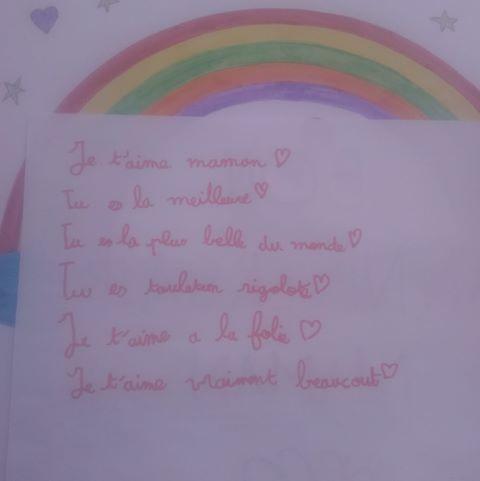 Je t'aime mamon ♡
Tu es la meilleure ♡
Tu es la plus belle du monde ♡
Tu es touletem rigolote ♡
Je t'aime a la folie ♡
Je t'aime vraiment beaucout ♡